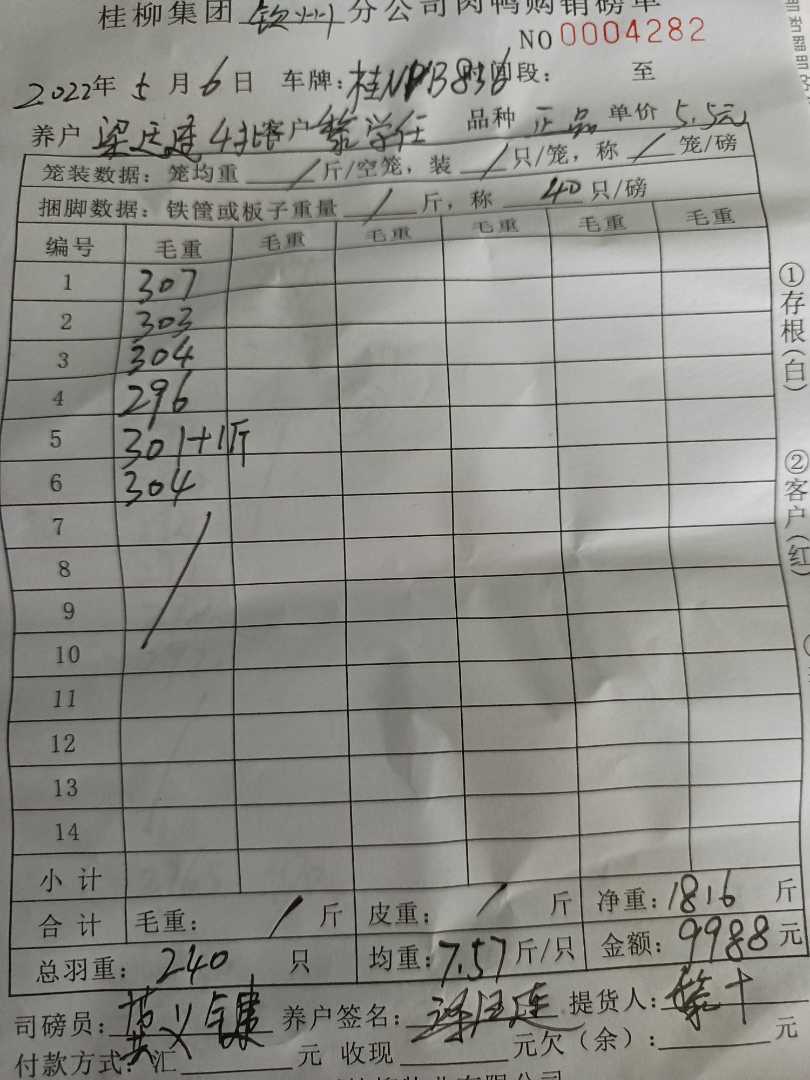 桂柳集团 钦州 分公司肉鸭购销磅单
NO 0004282
2022年 5 月 6 日 车牌：桂N 时间段： 至
养户 4批 客户 黎学任 品种 正品 单价 5.5元
笼装数据：笼均重 / 斤/空笼，装 / 只/笼，称 / 笼/磅
捆脚数据：铁筐或板子重量 / 斤，称 40 只/磅
编号 毛重 毛重 毛重 毛重 毛重 毛重
1 307
2 303
3 304
4 296
5 301+1斤
6 304
7
8
9
10
11
12
13
14
小 计
合 计 毛重： / 斤 皮重： / 斤 净重：1816 斤
总羽重：240 只 均重：7.57 斤/只 金额：9988 元
司磅员： 养户签名： 提货人：
付款方式：汇 元 收现 元欠（余）： 元
①存根(白)
②客户(红)